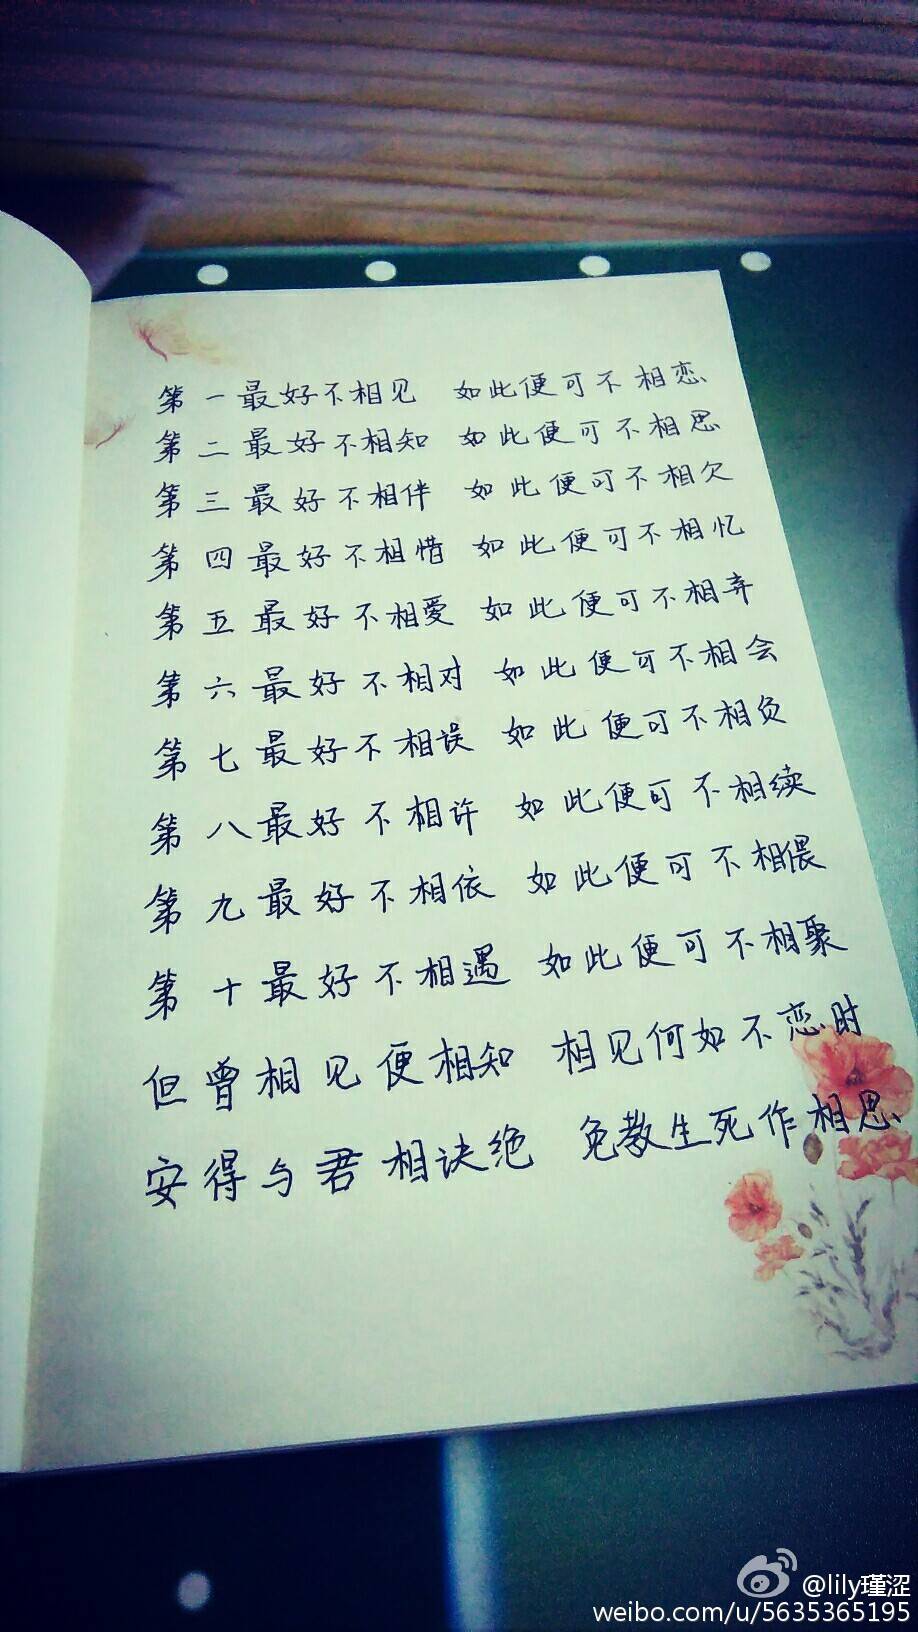 第一最好不相见 如此便可不相恋
第二最好不相知 如此便可不相思
第三最好不相伴 如此便可不相欠
第四最好不相惜 如此便可不相忆
第五最好不相爱 如此便可不相弃
第六最好不相对 如此便可不相会
第七最好不相误 如此便可不相负
第八最好不相许 如此便可不相续
第九最好不相依 如此便可不相偎
第十最好不相遇 如此便可不相聚
但曾相见便相知 相见何如不恋时
安得与君相诀绝 免教生死作相思
@lily瑾涩
weibo.com/u/5635365195